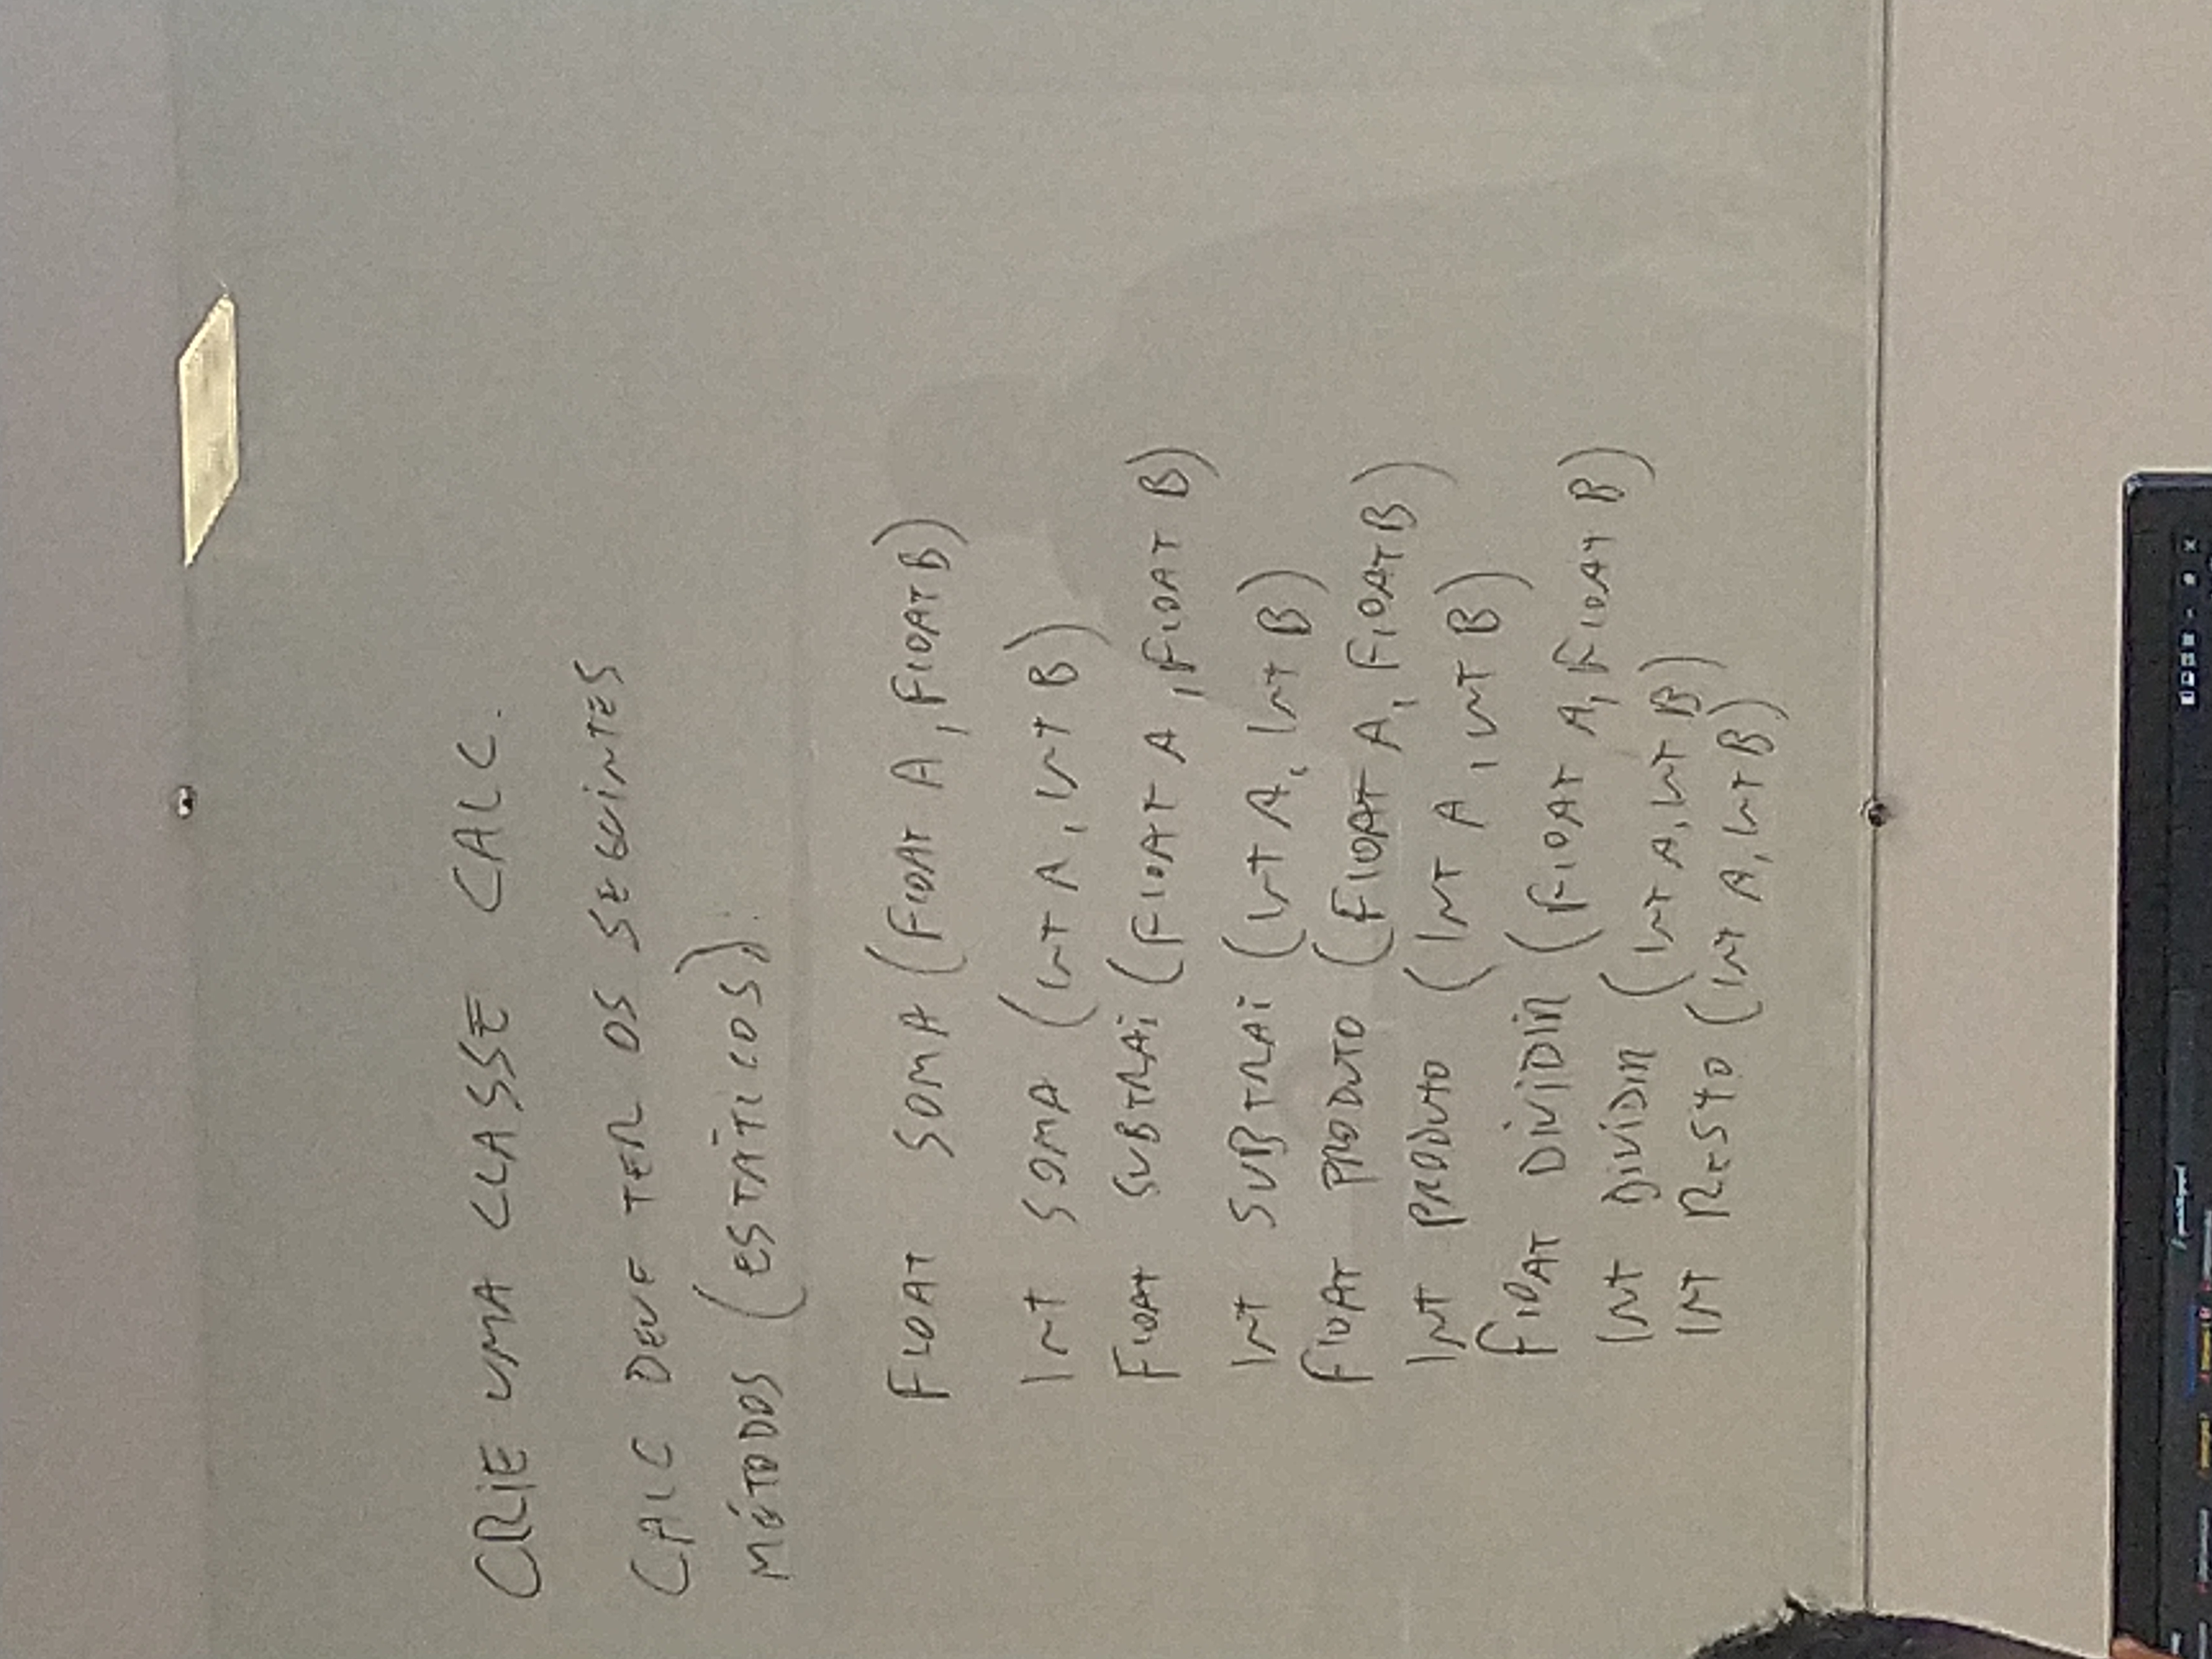 CRIE UMA CLASSE CALC.
CALC DEVE TER OS SEGUINTES
MÉTODOS (ESTÁTICOS):
FLOAT SOMA (FLOAT A, FLOAT B)
INT SOMA (INT A, INT B)
FLOAT SUBTRAI (FLOAT A, FLOAT B)
INT SUBTRAI (INT A, INT B)
FLOAT PRODUTO (FLOAT A, FLOAT B)
INT PRODUTO (INT A, INT B)
FLOAT DIVIDIR (FLOAT A, FLOAT B)
INT DIVIDIR (INT A, INT B)
INT RESTO (INT A, INT B)